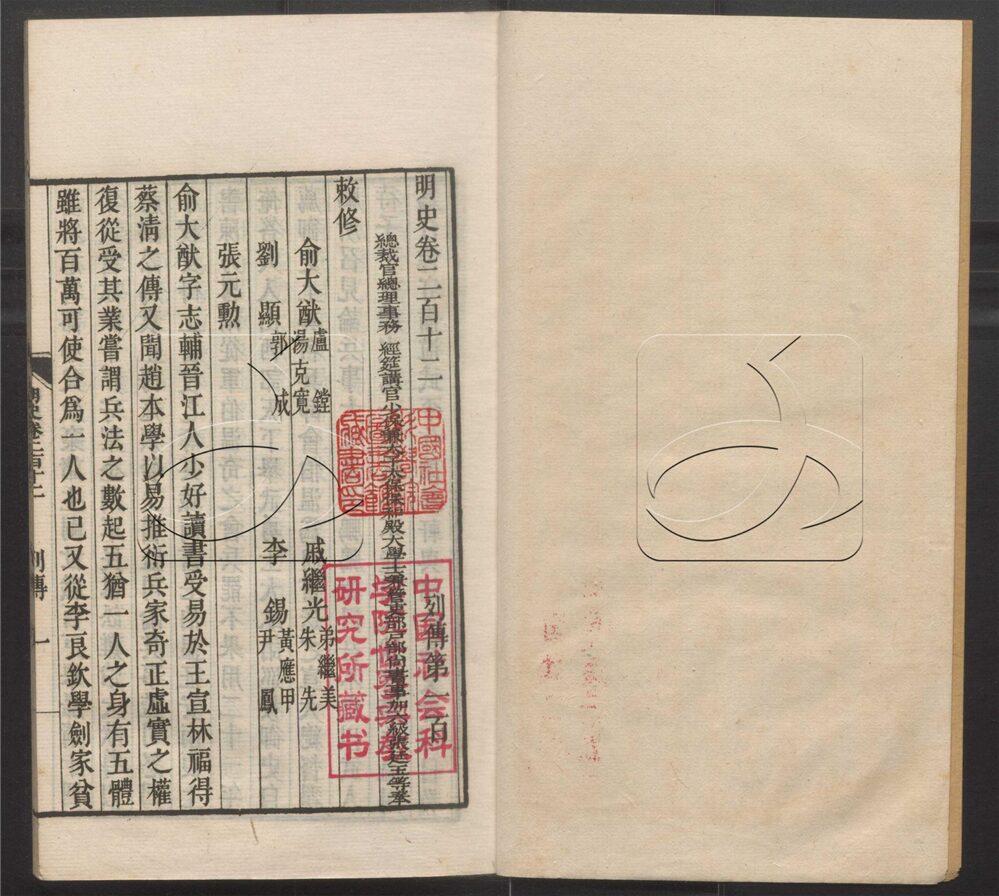 明史卷二百十二 列傳第一百
總裁官總理事務 經筵講官少保兼太子太保保和殿大學士兼管吏部戶部尚書事加六級張廷玉等奉
敕修
俞大猷 盧鏜 湯克寬 戚繼光 弟繼美 朱先
劉顯 郭成 李錫 黃應甲 尹鳳
張元勲
俞大猷字志輔晉江人少好讀書受易於王宣林福得
蔡清之傳又聞趙本學以易推衍兵家奇正虛實之權
復從受其業嘗謂兵法之數起五猶一人之身有五體
雖將百萬可使合為一人也已又從李良欽學劍家貧
明史卷二百十二 列傳 一
中国社会科
学院世界史
研究所藏书